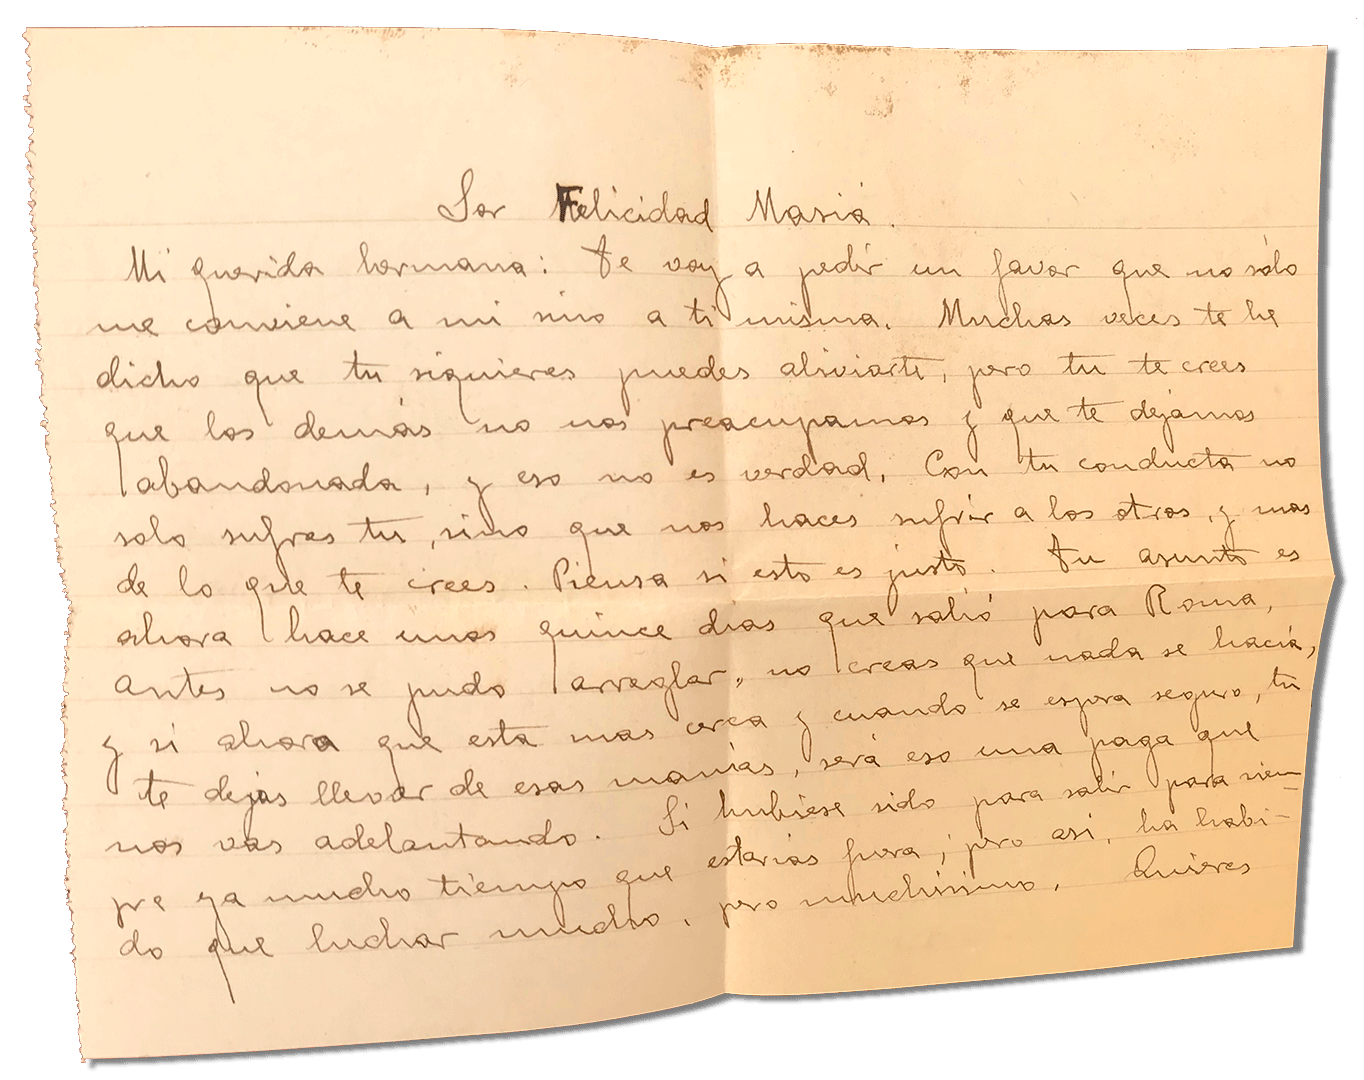 Sor Felicidad María.
Mi querida hermana: Te voy a pedir un favor que no sólo
me conviene a mi sino a ti misma. Muchas veces te he
dicho que tu si quieres puedes aliviarte, pero tu te crees
que los demás no nos preacupamos y que te dejamos
abandonada, y eso no es verdad. Con tu conducta no
solo sufres tu, sino que nos haces sufrir a los otros, y mas
de lo que te crees. Piensa si esto es justo. Tu asunto es
ahora hace unos quince dias que salió para Roma,
antes no se pudo arreglar, no creas que nada se hacía,
y si ahora que esta mas cerca y cuando se espera seguro, tu
te dejas llevar de esas manías, será eso una paga que
nos vas adelantando. Si hubiese sido para salir para siem-
pre ya mucho tiempo que estarías fuera; pero asi, ha habi-
do que luchar mucho, pero muchisimo. Quieres